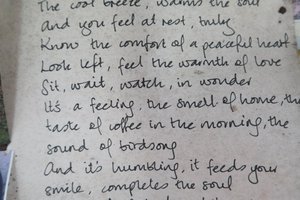 The cool breeze, warms the soul
And you feel at rest, truly
Know the comfort of a peaceful heart
Look left, feel the warmth of love
Sit, wait, watch, in wonder
It's a feeling, the smell of home, the
taste of coffee in the morning, the
sound of birdsong
And it's humbling, it feeds your
smile, completes the soul